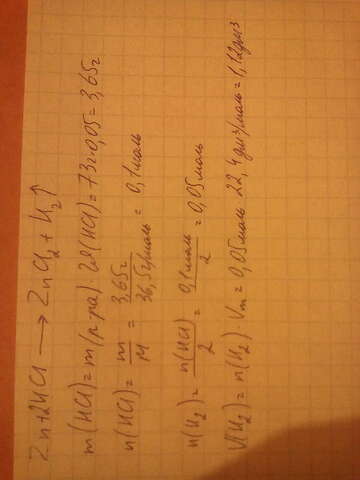 Zn+2HCl → ZnCl₂ + H₂↑
m(HCl) = m(р-ра) · W(HCl) = 73г·0,05 = 3,65г
n(HCl) = m/M = 3,65г/36,5г/моль = 0,1моль
n(H₂) = n(HCl)/2 = 0,1моль/2 = 0,05моль
V(H₂) = n(H₂) · Vm = 0,05моль · 22,4дм3/моль = 1,12дм3